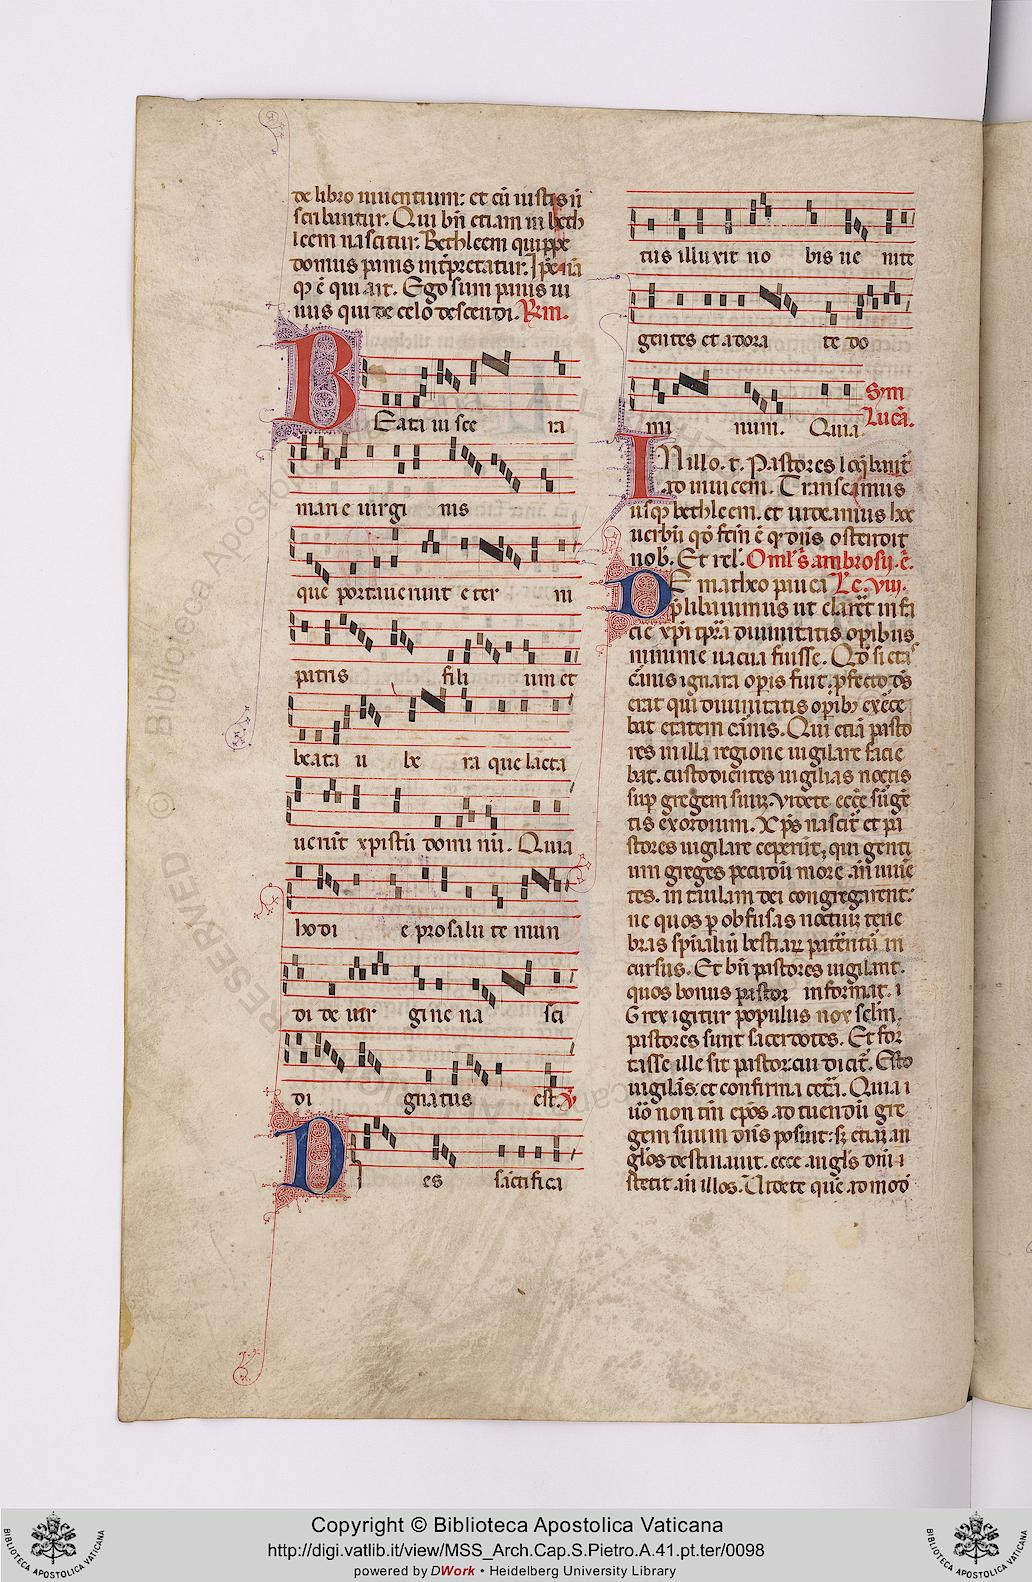 de libro uiuentium: et cū iustis n̄
scribantur. Qui bn̄ etiam in beth
leem nascitur: Bethleem quippe
domus panis int̄pretatur. Ip̄e nā
qͥ ē qui ait. Ego sum panis ui
uus qui de celo descendi. Rm̄.
BEata uisce ra
marie uirgi nis
que portauerunt eter ni
patris fili um et
beata u be ra que lacta
uerūt xpistū domi nū. Quia
hodi e pro salu te mun
di de uir gine na sci
di gnatus est. ℣
Dies sāctifica
tus illuxit no bis ue nite
gentes et adora te do
mi num. Quia.
Sʒm
Lucā.
IN illo. t. Pastores loq̄bant̄
ad inuicem. Transeamus
usqꝫ bethleem. et uideamus hoc
uerbū qd̓ fc̄m ē qd̓ dn̄s ostendit
nob̓. Et rel̓. Oml̓. s̄. ambrosij. ē.
DE matheo pauca Lc̄. viij.
p̄libauimus ut claret̄ in fa
cie xp̄i tp̄ra diuinitatis op̄ibus
minime uacua fuisse. Qd̓ si etas
eius ignara operis fuit. p̄fecto ds̄
erat qui diuinitatis op̄ibꝫ exerce
bat etatem eius. Qui etiā pasto
res in illa regione uigilare facie
bat. custodientes uigilias noctis
sup̄ gregem suuꝫ. Videte ecc̄e surgē
tis exordium. Xp̄s nascit̄ et pa
stores uigilare ceperūt, qui genti
um greges pecudū more añ uiuē
tes. in caulam dei congregarent:
ne quos p̄ obfusas noctiuꝫ tene
bras sp̄ualiū bestiaꝝ paterent̄ in
cursus. Et bn̄ pastores uigilant.
quos bonus pastor informat.
Grex igitur populus nox sclm̄.
pastores sunt sacerdotes. Et for
tasse ille sit pastor. cui dicit̄. Esto
uigilās. et confirma cetā. Quia
uō non tm̄ ep̄os ad tuendū gre
gem suum dn̄s posuit: sꝫ etiaꝫ an
glōs destinauit. ecce angl̓s dn̄i
stetit añ illos. Videte que admod̓
Copyright © Biblioteca Apostolica Vaticana
http://digi.vatlib.it/view/MSS_Arch.Cap.S.Pietro.A.41.pt.ter/0098
powered by DWork • Heidelberg University Library
BIBLIOTECA APOSTOLICA VATICANA
BIBLIOTECA APOSTOLICA VATICANA